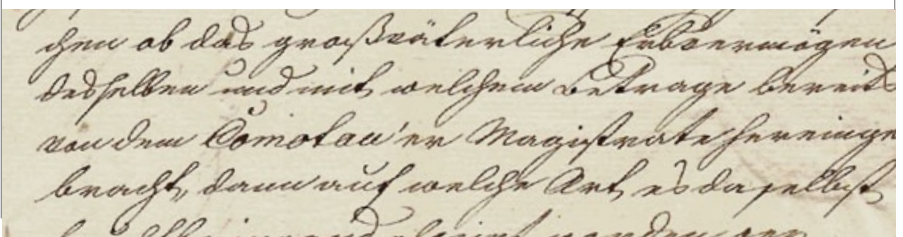 chen ob das großväterliche Erbvermögen
desselben und mit welchem Betrage bereits
von dem Comotau'er Magistrate hereinge
bracht, dann auf welche Art es daselbst